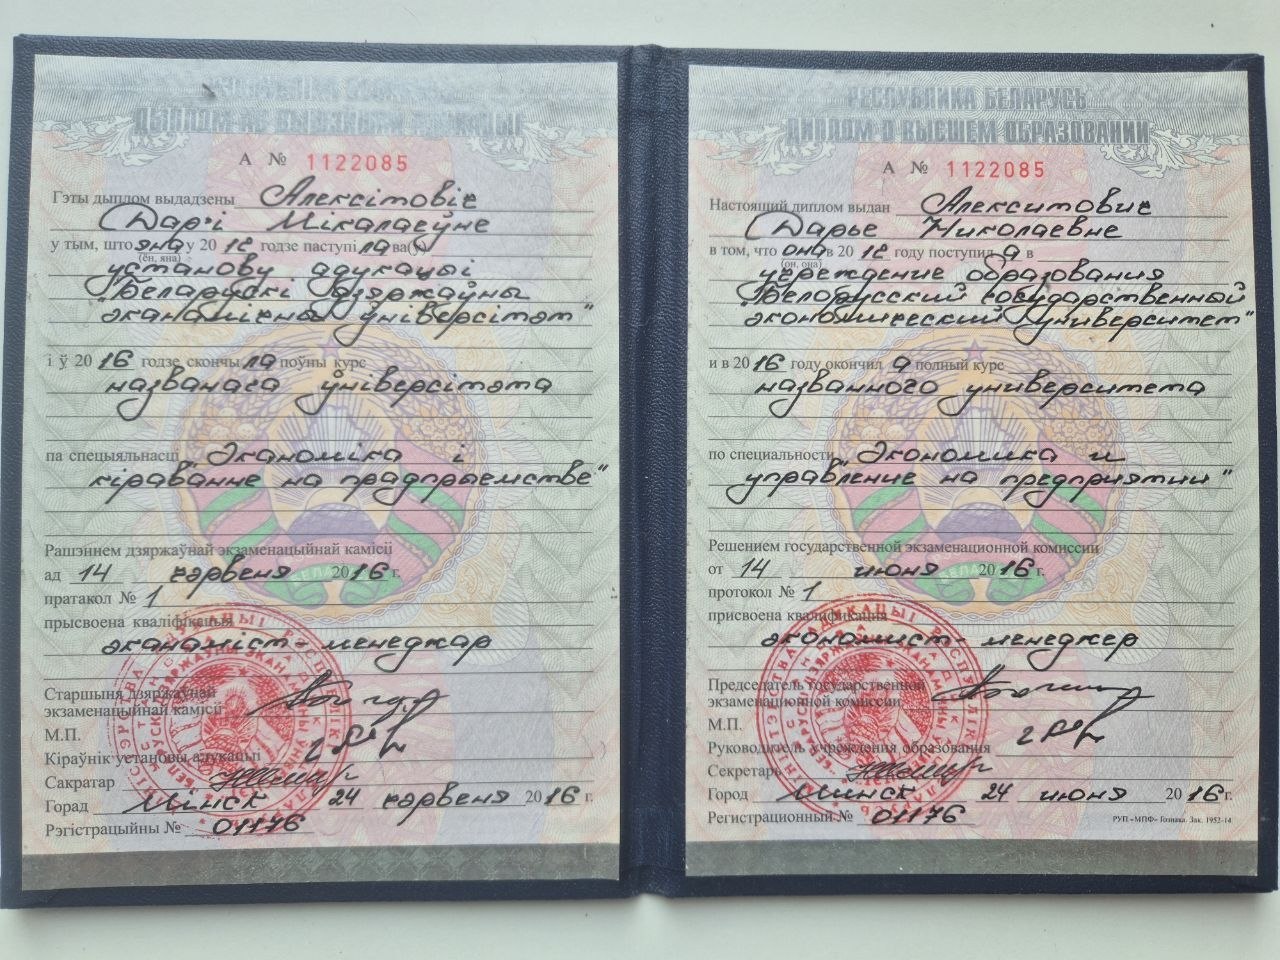 ДЫПЛОМ АБ ВЫШЭЙШАЙ АДУКАЦЫІ
А № 1122085
Гэты дыплом выдадзены Алексітовіч
Дар'і Мікалаеўне
у тым, што яна у 20 12 годзе паступі ла ва(ў)
(ён, яна)
установу адукацыі
"Беларускі дзяржаўны
эканамічны ўніверсітэт"
і ў 20 16 годзе скончы ла поўны курс
названага ўніверсітэта
па спецыяльнасці "Эканоміка і
кіраванне на прадпрыемстве"
Рашэннем дзяржаўнай экзаменацыйнай камісіі
ад 14 чэрвеня 20 16 г.
пратакол № 1
прысвоена кваліфікацыя
эканаміст-менеджар
Старшыня дзяржаўнай
экзаменацыйнай камісіі
М.П.
Кіраўнік установы адукацыі
Сакратар
Горад Мінск 24 чэрвеня 20 16 г.
Рэгістрацыйны № 01176
РЕСПУБЛИКА БЕЛАРУСЬ
ДИПЛОМ О ВЫСШЕМ ОБРАЗОВАНИИ
А № 1122085
Настоящий диплом выдан Алекситович
Дарье Николаевне
в том, что она в 20 12 году поступил а в
(он, она)
учреждение образования
"Белорусский государственный
экономический университет"
и в 20 16 году окончил а полный курс
названного университета
по специальности "Экономика и
управление на предприятии"
Решением государственной экзаменационной комиссии
от 14 июня 20 16 г.
протокол № 1
присвоена квалификация
экономист-менеджер
Председатель государственной
экзаменационной комиссии
М.П.
Руководитель учреждения образования
Секретарь
Город Минск 24 июня 20 16 г.
Регистрационный № 01176
РУП «МПФ» Гознака. Зак. 1952-14